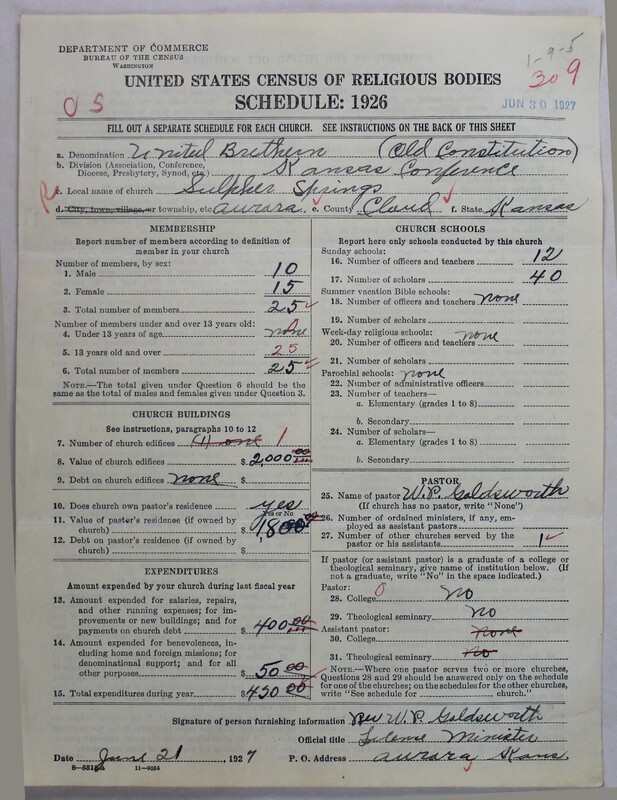 DEPARTMENT OF COMMERCE
BUREAU OF THE CENSUS
WASHINGTON
1-9-5
309
UNITED STATES CENSUS OF RELIGIOUS BODIES
O S
SCHEDULE: 1926
JUN 30 1927
FILL OUT A SEPARATE SCHEDULE FOR EACH CHURCH. SEE INSTRUCTIONS ON THE BACK OF THIS SHEET
a. Denomination United Brethern (Old Constitution)
b. Division (Association, Conference, Diocese, Presbytery, Synod, etc.) Kansas Conference
c. Local name of church Sulpher Springs
d. City, town, village, or township, etc. Aurora e. County Cloud f. State Kansas
MEMBERSHIP
Report number of members according to definition of
member in your church
Number of members, by sex:
1. Male 10
2. Female 15
3. Total number of members 25
Number of members under and over 13 years old:
4. Under 13 years of age none 0
5. 13 years old and over 25
6. Total number of members 25
NOTE.—The total given under Question 6 should be
same as the total of males and females given under Question 3.
CHURCH BUILDINGS
See instructions, paragraphs 10 to 12
7. Number of church edifices (1) one 1
8. Value of church edifices $ 2,000.00
9. Debt on church edifices none $
10. Does church own pastor's residence yes
Yes or No
11. Value of pastor's residence (if owned by
church) $ 1,800
12. Debt on pastor's residence (if owned by
church) $
EXPENDITURES
Amount expended by your church during last fiscal year
13. Amount expended for salaries, repairs,
and other running expenses; for im-
provements or new buildings; and for
payments on church debt $ 400.00
14. Amount expended for benevolences, in-
cluding home and foreign missions; for
denominational support; and for all
other purposes $ 50.00
15. Total expenditures during year $ 450.00
CHURCH SCHOOLS
Report here only schools conducted by this church
Sunday schools:
16. Number of officers and teachers 12
17. Number of scholars 40
Summer vacation Bible schools:
18. Number of officers and teachers none
19. Number of scholars
Week-day religious schools: none
20. Number of officers and teachers
21. Number of scholars
Parochial schools: none
22. Number of administrative officers
23. Number of teachers—
a. Elementary (grades 1 to 8)
b. Secondary
24. Number of scholars—
a. Elementary (grades 1 to 8)
b. Secondary
PASTOR
25. Name of pastor W.P. Goldsworth
(If church has no pastor, write "None")
26. Number of ordained ministers, if any, em-
ployed as assistant pastors
27. Number of other churches served by the
pastor or his assistants 1
If pastor (or assistant pastor) is a graduate of a college or
theological seminary, give name of institution below. (If
not a graduate, write "No" in the space indicated.)
Pastor:
28. College 0 No
29. Theological seminary No
Assistant pastor:
30. College None
31. Theological seminary No
NOTE.—Where one pastor serves two or more churches,
Questions 28 and 29 should be answered only on the schedule
for one of the churches; on the schedules for the other churches,
write "See schedule for church."
Signature of person furnishing information Rev W.P. Goldsworth
Official title Minister
Date June 21, 1927 P. O. Address Aurora Kans.
11-9364